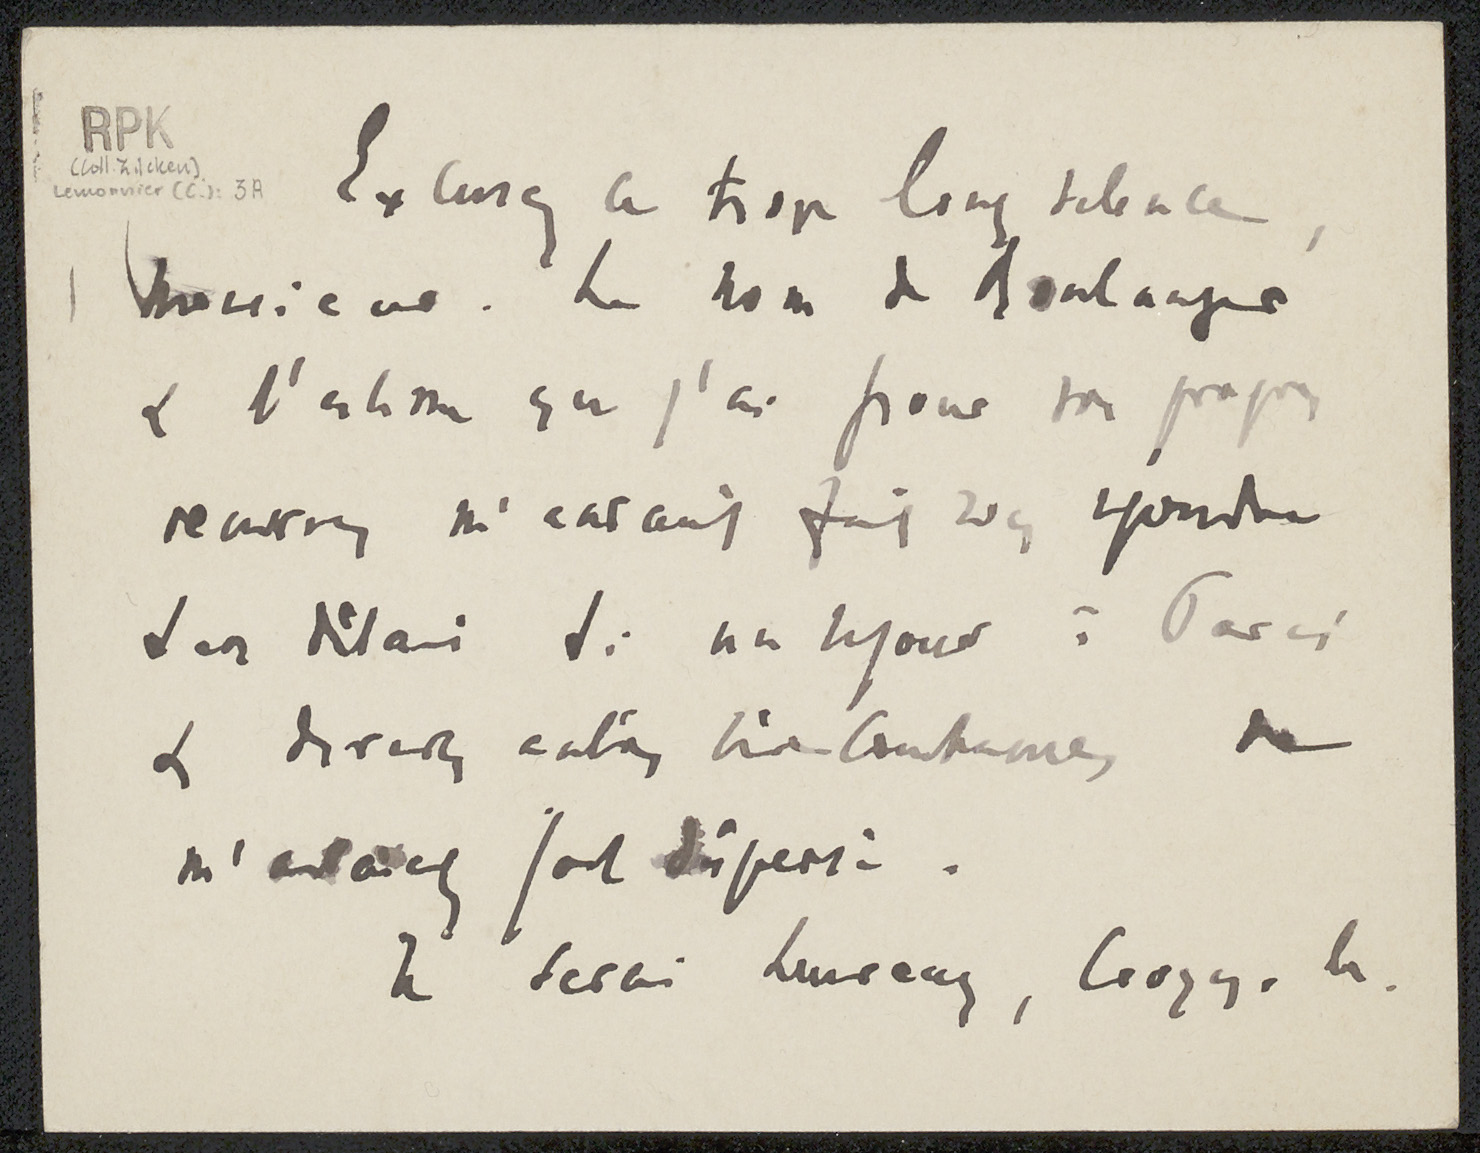 RPK
(Coll. Zilcken)
Lemonnier (C.): 3A
Excusez ce trop long silence,
Monsieur. Le nom de Boulenger
& l'estime que j'ai pour son propre
m'auraient fait vous répondre
sans délai si un séjour à Paris
& diverses autres circonstances ne
m'avaient fort dispersé.
Je serai heureux, croyez-le.